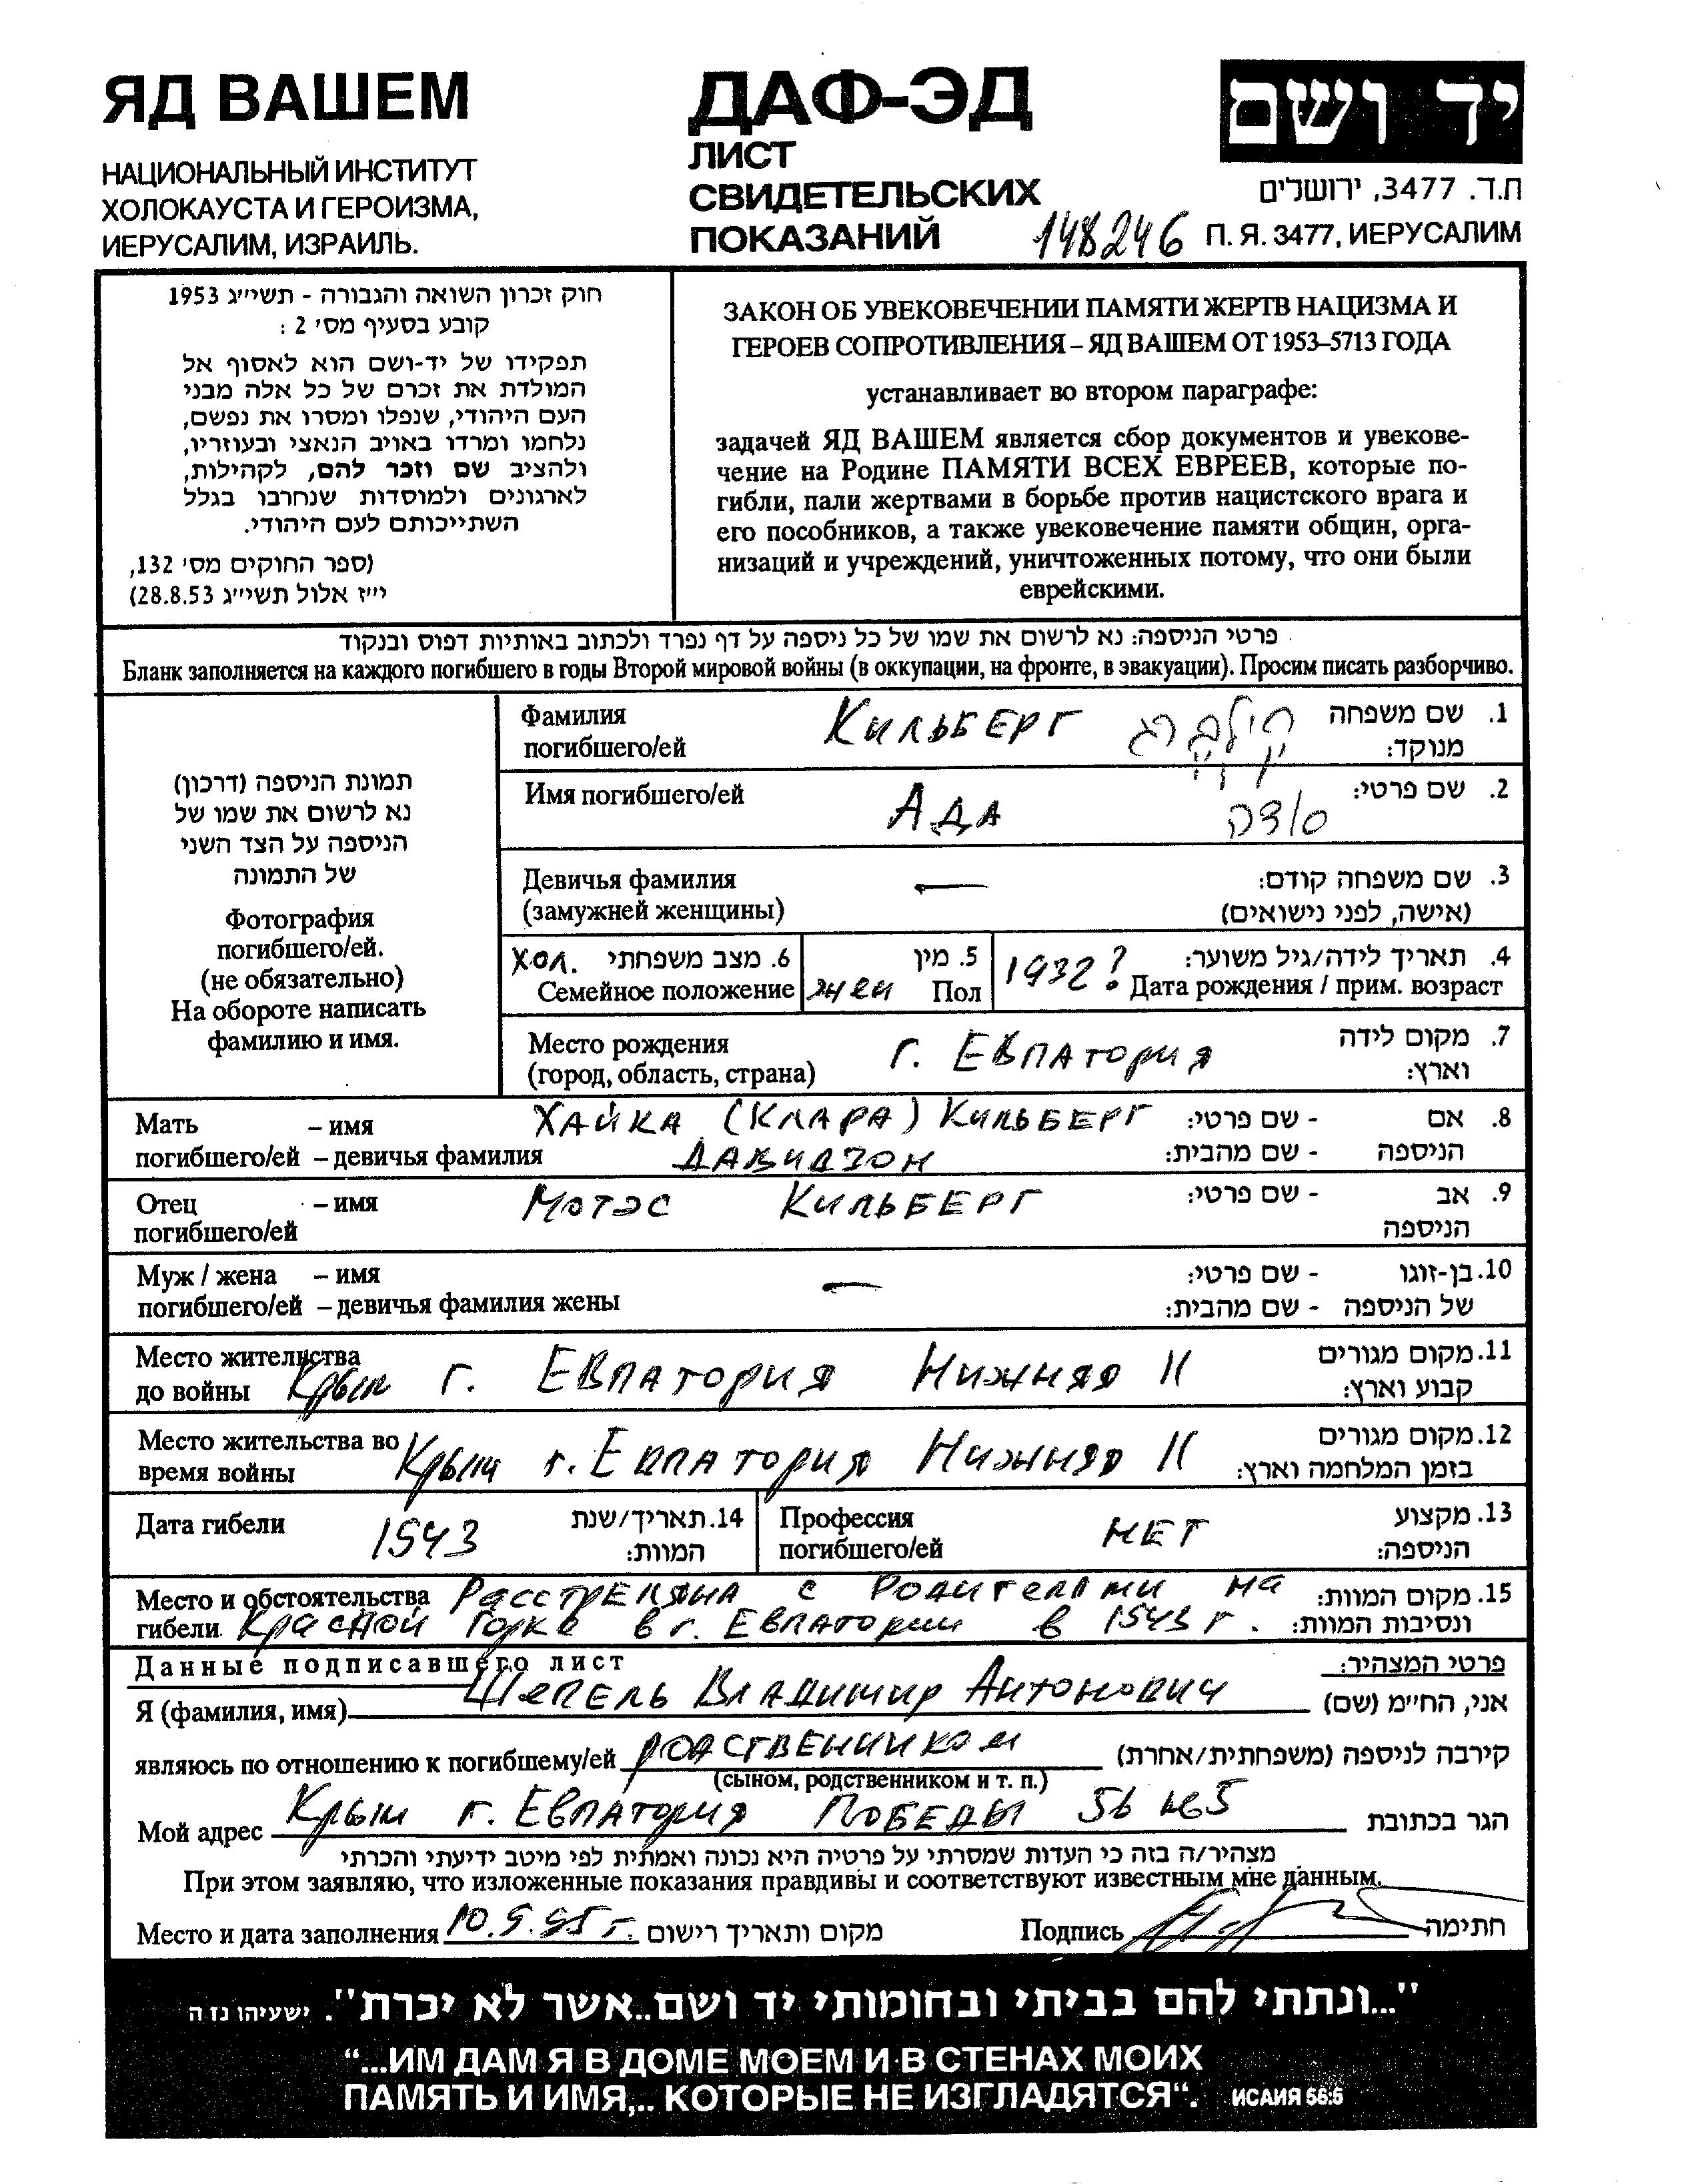 ЯД ВАШЕМ
НАЦИОНАЛЬНЫЙ ИНСТИТУТ
ХОЛОКАУСТА И ГЕРОИЗМА,
ИЕРУСАЛИМ, ИЗРАИЛЬ.
ДАФ-ЭД
ЛИСТ
СВИДЕТЕЛЬСКИХ
ПОКАЗАНИЙ
148246
יד ושם
ת.ד. 3477, ירושלים
П. Я. 3477, ИЕРУСАЛИМ
חוק זכרון השואה והגבורה - תשי״ג 1953
קובע בסעיף מס׳ 2 :
תפקידו של יד-ושם הוא לאסוף אל
המולדת את זכרם של כל אלה מבני
העם היהודי, שנפלו ומסרו את נפשם,
נלחמו ומרדו באויב הנאצי ובעוזריו,
ולהציב שם וזכר להם, לקהילות,
לארגונים ולמוסדות שנחרבו בגלל
השתייכותם לעם היהודי.
(ספר החוקים מס׳ 132,
י״ז אלול תשי״ג 28.8.53)
ЗАКОН ОБ УВЕКОВЕЧЕНИИ ПАМЯТИ ЖЕРТВ НАЦИЗМА И
ГЕРОЕВ СОПРОТИВЛЕНИЯ – ЯД ВАШЕМ ОТ 1953–5713 ГОДА
устанавливает во втором параграфе:
задачей ЯД ВАШЕМ является сбор документов и увекове-
чение на Родине ПАМЯТИ ВСЕХ ЕВРЕЕВ, которые по-
гибли, пали жертвами в борьбе против нацистского врага и
его пособников, а также увековечение памяти общин, орга-
низаций и учреждений, уничтоженных потому, что они были
еврейскими.
פרטי הניספה: נא לרשום את שמו של כל ניספה על דף נפרד ולכתוב באותיות דפוס ובנקוד
Бланк заполняется на каждого погибшего в годы Второй мировой войны (в оккупации, на фронте, в эвакуации). Просим писать разборчиво.
תמונת הניספה (דרכון)
נא לרשום את שמו של
הניספה על הצד השני
של התמונה
Фотография
погибшего/ей.
(не обязательно)
На обороте написать
фамилию и имя.
Фамилия Кильберг קילברג 1. שם משפחה
погибшего/ей מנוקד:
Имя погибшего/ей Ада אדה 2. שם פרטי:
Девичья фамилия — 3. שם משפחה קודם:
(замужней женщины) (אישה, לפני נישואים)
хол. 6. מצב משפחתי 5. מין 1932? 4. תאריך לידה/גיל משוער:
Семейное положение жен Пол Дата рождения / прим. возраст
Место рождения г. Евпатория 7. מקום לידה
(город, область, страна) וארץ:
Мать – имя Хайка (Клара) Кильберг 8. אם - שם פרטי:
погибшего/ей – девичья фамилия Давидзон הניספה - שם מהבית:
Отец – имя Мотэс Кильберг 9. אב - שם פרטי:
погибшего/ей הניספה
Муж / жена – имя — 10. בן-זוגו - שם פרטי:
погибшего/ей – девичья фамилия жены של הניספה - שם מהבית:
Место жительства 11. מקום מגורים
до войны Крым г. Евпатория Нижняя 11 קבוע וארץ:
Место жительства во 12. מקום מגורים
время войны Крым г. Евпатория Нижняя 11 בזמן המלחמה וארץ:
Дата гибели 1943 14. תאריך/שנת Профессия нет 13. מקצוע
המוות: погибшего/ей הניספה:
Место и обстоятельства Расстреляна с родителями на 15. מקום המוות:
гибели Красной горке в г. Евпатории в 1943 г. ונסיבות המוות:
Данные подписавшего лист פרטי המצהיר:
Я (фамилия, имя) Шепель Владимир Антонович אני, הח״מ (שם)
являюсь по отношению к погибшему/ей родственником קירבה לניספה (משפחתית/אחרת)
(сыном, родственником и т. п.)
Мой адрес Крым г. Евпатория Победы 56 кв5 הגר בכתובת
מצהיר/ה בזה כי העדות שמסרתי על פרטיה היא נכונה ואמתית לפי מיטב ידיעתי והכרתי
При этом заявляю, что изложенные показания правдивы и соответствуют известным мне данным.
Место и дата заполнения 10.9.95 г. מקום ותאריך רישום Подпись חתימה
"...ונתתי להם בביתי ובחומותי יד ושם..אשר לא יכרת". ישעיהו נז ה
“...ИМ ДАМ Я В ДОМЕ МОЕМ И В СТЕНАХ МОИХ
ПАМЯТЬ И ИМЯ,.. КОТОРЫЕ НЕ ИЗГЛАДЯТСЯ“. ИСАИЯ 56:5